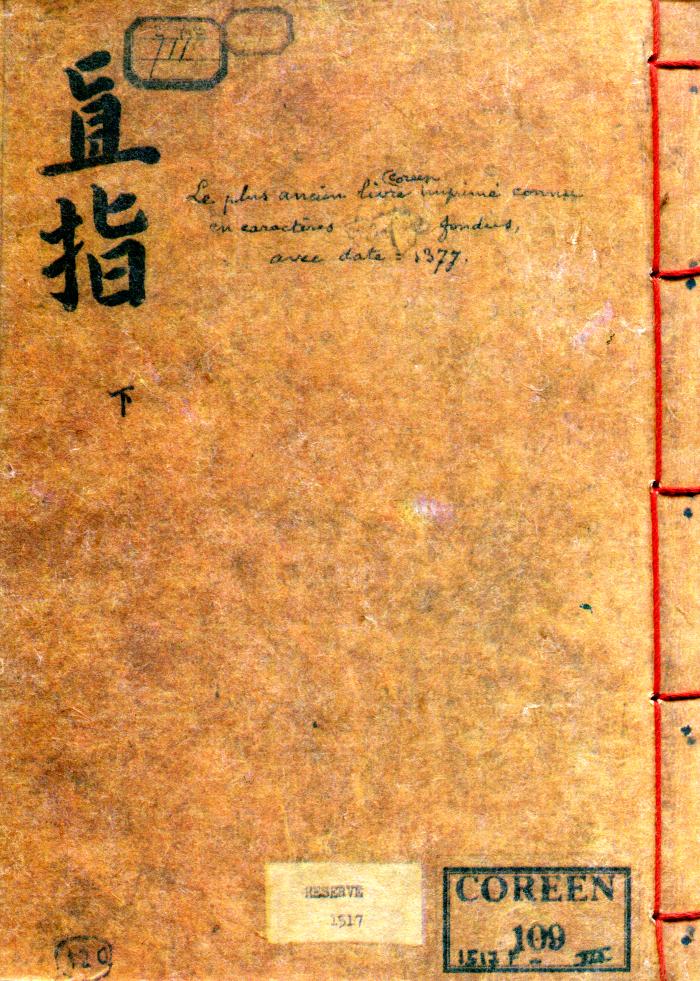 711
直指
下
Coreen
Le plus ancien livre imprimé connu
en caractères fondus,
avec date = 1377.
RESERVE
1517
COREEN
109
1517